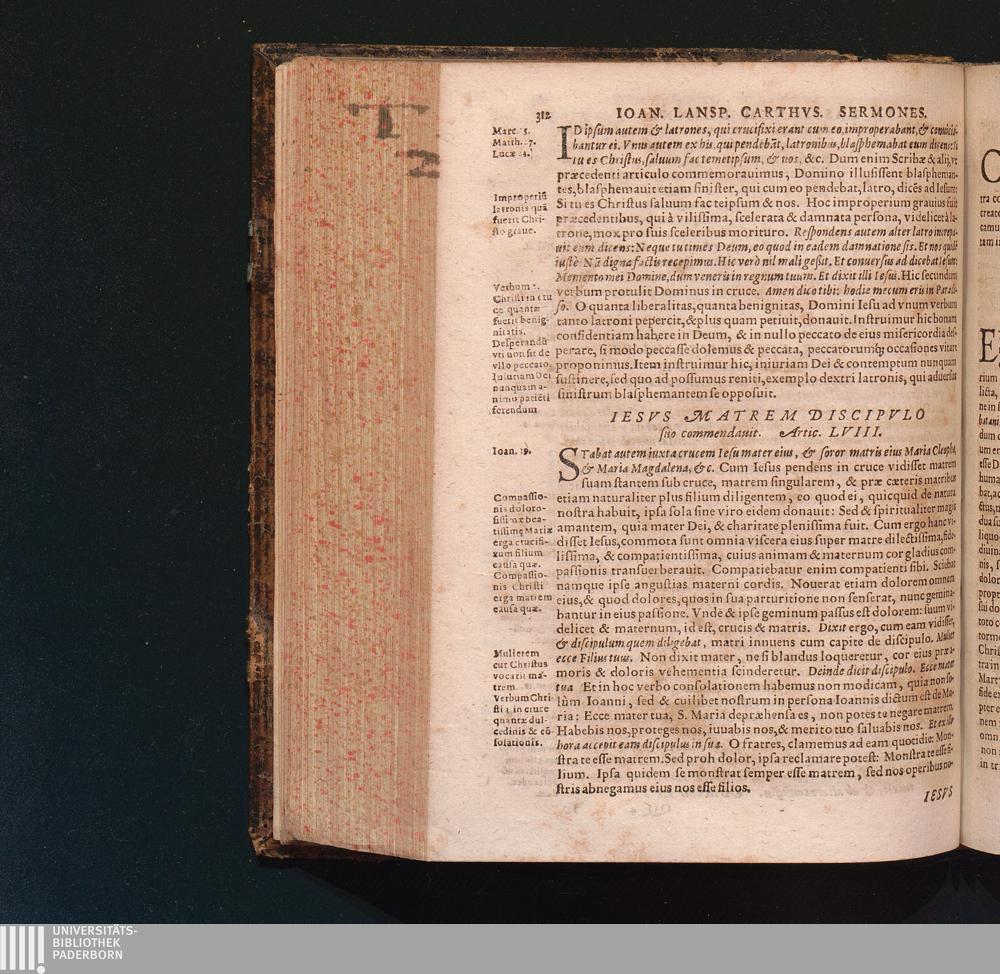 312 IOAN. LANSP. CARTHVS. SERMONES.
Marc. 15.
Matth. 27.
Lucæ
IDipsum autem & latrones, qui crucifixi erant cum eo, improperabant, & convicia-
bantur ei. Vnus autem ex his, qui pendebāt, latronibus, blasphemabat eum dicens: Si
tu es Christus, saluum fac temetipsum, & nos, &c. Dum enim Scribæ & alij, vt
præcedenti articulo commemorauimus, Domino illusissent blaspheman-
tes, blasphemauit etiam sinister, qui cum eo pendebat, latro, dicēs ad Iesum:
Si tu es Christus saluum fac teipsum & nos. Hoc improperium grauius fuit
præcedentibus, qui à vilissima, scelerata & damnata persona, videlicet à la-
trone, mox pro suis sceleribus morituro. Respondens autem alter latro increpa-
uit eum dicens: Neque tu times Deum, eo quod in eadem damnatione sis. Et nos quidē
iustè. Nā digna factis recepimus. Hic verò nil mali gessit. Et conuersus ad dicebat Iesum:
Memento mei Domine, dum veneris in regnum tuum. Et dixit illi Iesus. Hic secundum
verbum protulit Dominus in cruce, Amen dico tibi: hodie mecum eris in Paradi-
so. O quanta liberalitas, quanta benignitas, Domini Iesu ad vnum verbum
tanto latroni pepercit, & plus quam petiuit, donauit. Instruimur hic bonam
confidentiam habere in Deum, & in nullo peccato de eius misericordia des-
perare, si modo peccasse dolemus & peccata, peccatorumq; occasiones vitare
proponimus. Item instruimur hic, iniuriam Dei & contemptum nunquam
sustinere, sed quo ad possumus reniti, exemplo dextri latronis, qui aduersus
sinistrum blasphemantem se opposuit.
Improperiū
latronis quā
fuerit Chri-
sto graue.
Verbum 2.
Christi in cru
ce quantæ
fuerit benig-
nitatis.
Desperandū
vti non sit de
vllo peccato.
Iniuriam Dei
nunquam a-
nimo patiēti
ferendum.
IESVS MATREM DISCIPVLO
suo commendauit. Artic. LVIII.
Ioan. 19.
STabat autem iuxta crucem Iesu mater eius, & soror matris eius Maria Cleophæ,
& Maria Magdalena, &c. Cum Iesus pendens in cruce vidisset matrem
suam stantem sub cruce, matrem singularem, & præ cæteris matribus
etiam naturaliter plus filium diligentem, eo quod ei, quicquid de natura
nostra habuit, ipsa sola sine viro eidem donauit: Sed & spiritualiter magis
amantem, quia mater Dei, & charitate plenissima fuit. Cum ergo hanc vi-
disset Iesus, commota sunt omnia viscera eius super matre dilectissima, fide-
lissima, & compatientissima, cuius animam & maternum cor gladius com-
passionis transuerberauit. Compatiebatur enim compatienti sibi. Sciebat
namque ipse angustias materni cordis. Nouerat etiam dolorem omnem
eius, & quod dolores, quos in sua parturitione non senserat, nunc gemina-
bantur in eius passione. Vnde & ipse geminum passus est dolorem: suum vi-
delicet & maternum, id est, crucis & matris. Dixit ergo, cum eam vidisset,
& discipulum quem diligebat, matri innuens cum capite de discipulo. Mulier
ecce Filius tuus. Non dixit mater, ne si blandus loqueretur, cor eius præ a-
moris & doloris vehementia scinderetur. Deinde dicit discipulo. Ecce mater
tua Et in hoc verbo consolationem habemus non modicam, quia non so-
lùm Ioanni, sed & cuilibet nostrum in persona Ioannis dictum est de Ma-
ria: Ecce mater tua, S. Maria depræhensa es, non potes tu negare matrem.
Habebis nos, proteges nos, iuuabis nos, & merito tuo saluabis nos. Et ex illa
hora accepit eam discipulus in sua. O fratres, clamemus ad eam quotidie: Mon-
stra te esse matrem. Sed proh dolor, ipsa reclamare potest: Monstra te esse fi-
lium. Ipsa quidem se monstrat semper esse matrem, sed nos operibus no-
stris abnegamus eius nos esse filios.
Compassio-
nis doloro-
sissimæ bea-
tissimę Mariæ
erga crucifi-
xum filium
causa quæ.
Compassio-
nis Christi
erga matrem
causa quæ.
Mulierem
cur Christus
vocarit ma-
trem
Verbum Chri-
sti 3. in cruce
quantæ dul-
cedinis & cō
solationis.
IESVS
T
2
UNIVERSITÄTS-
BIBLIOTHEK
PADERBORN